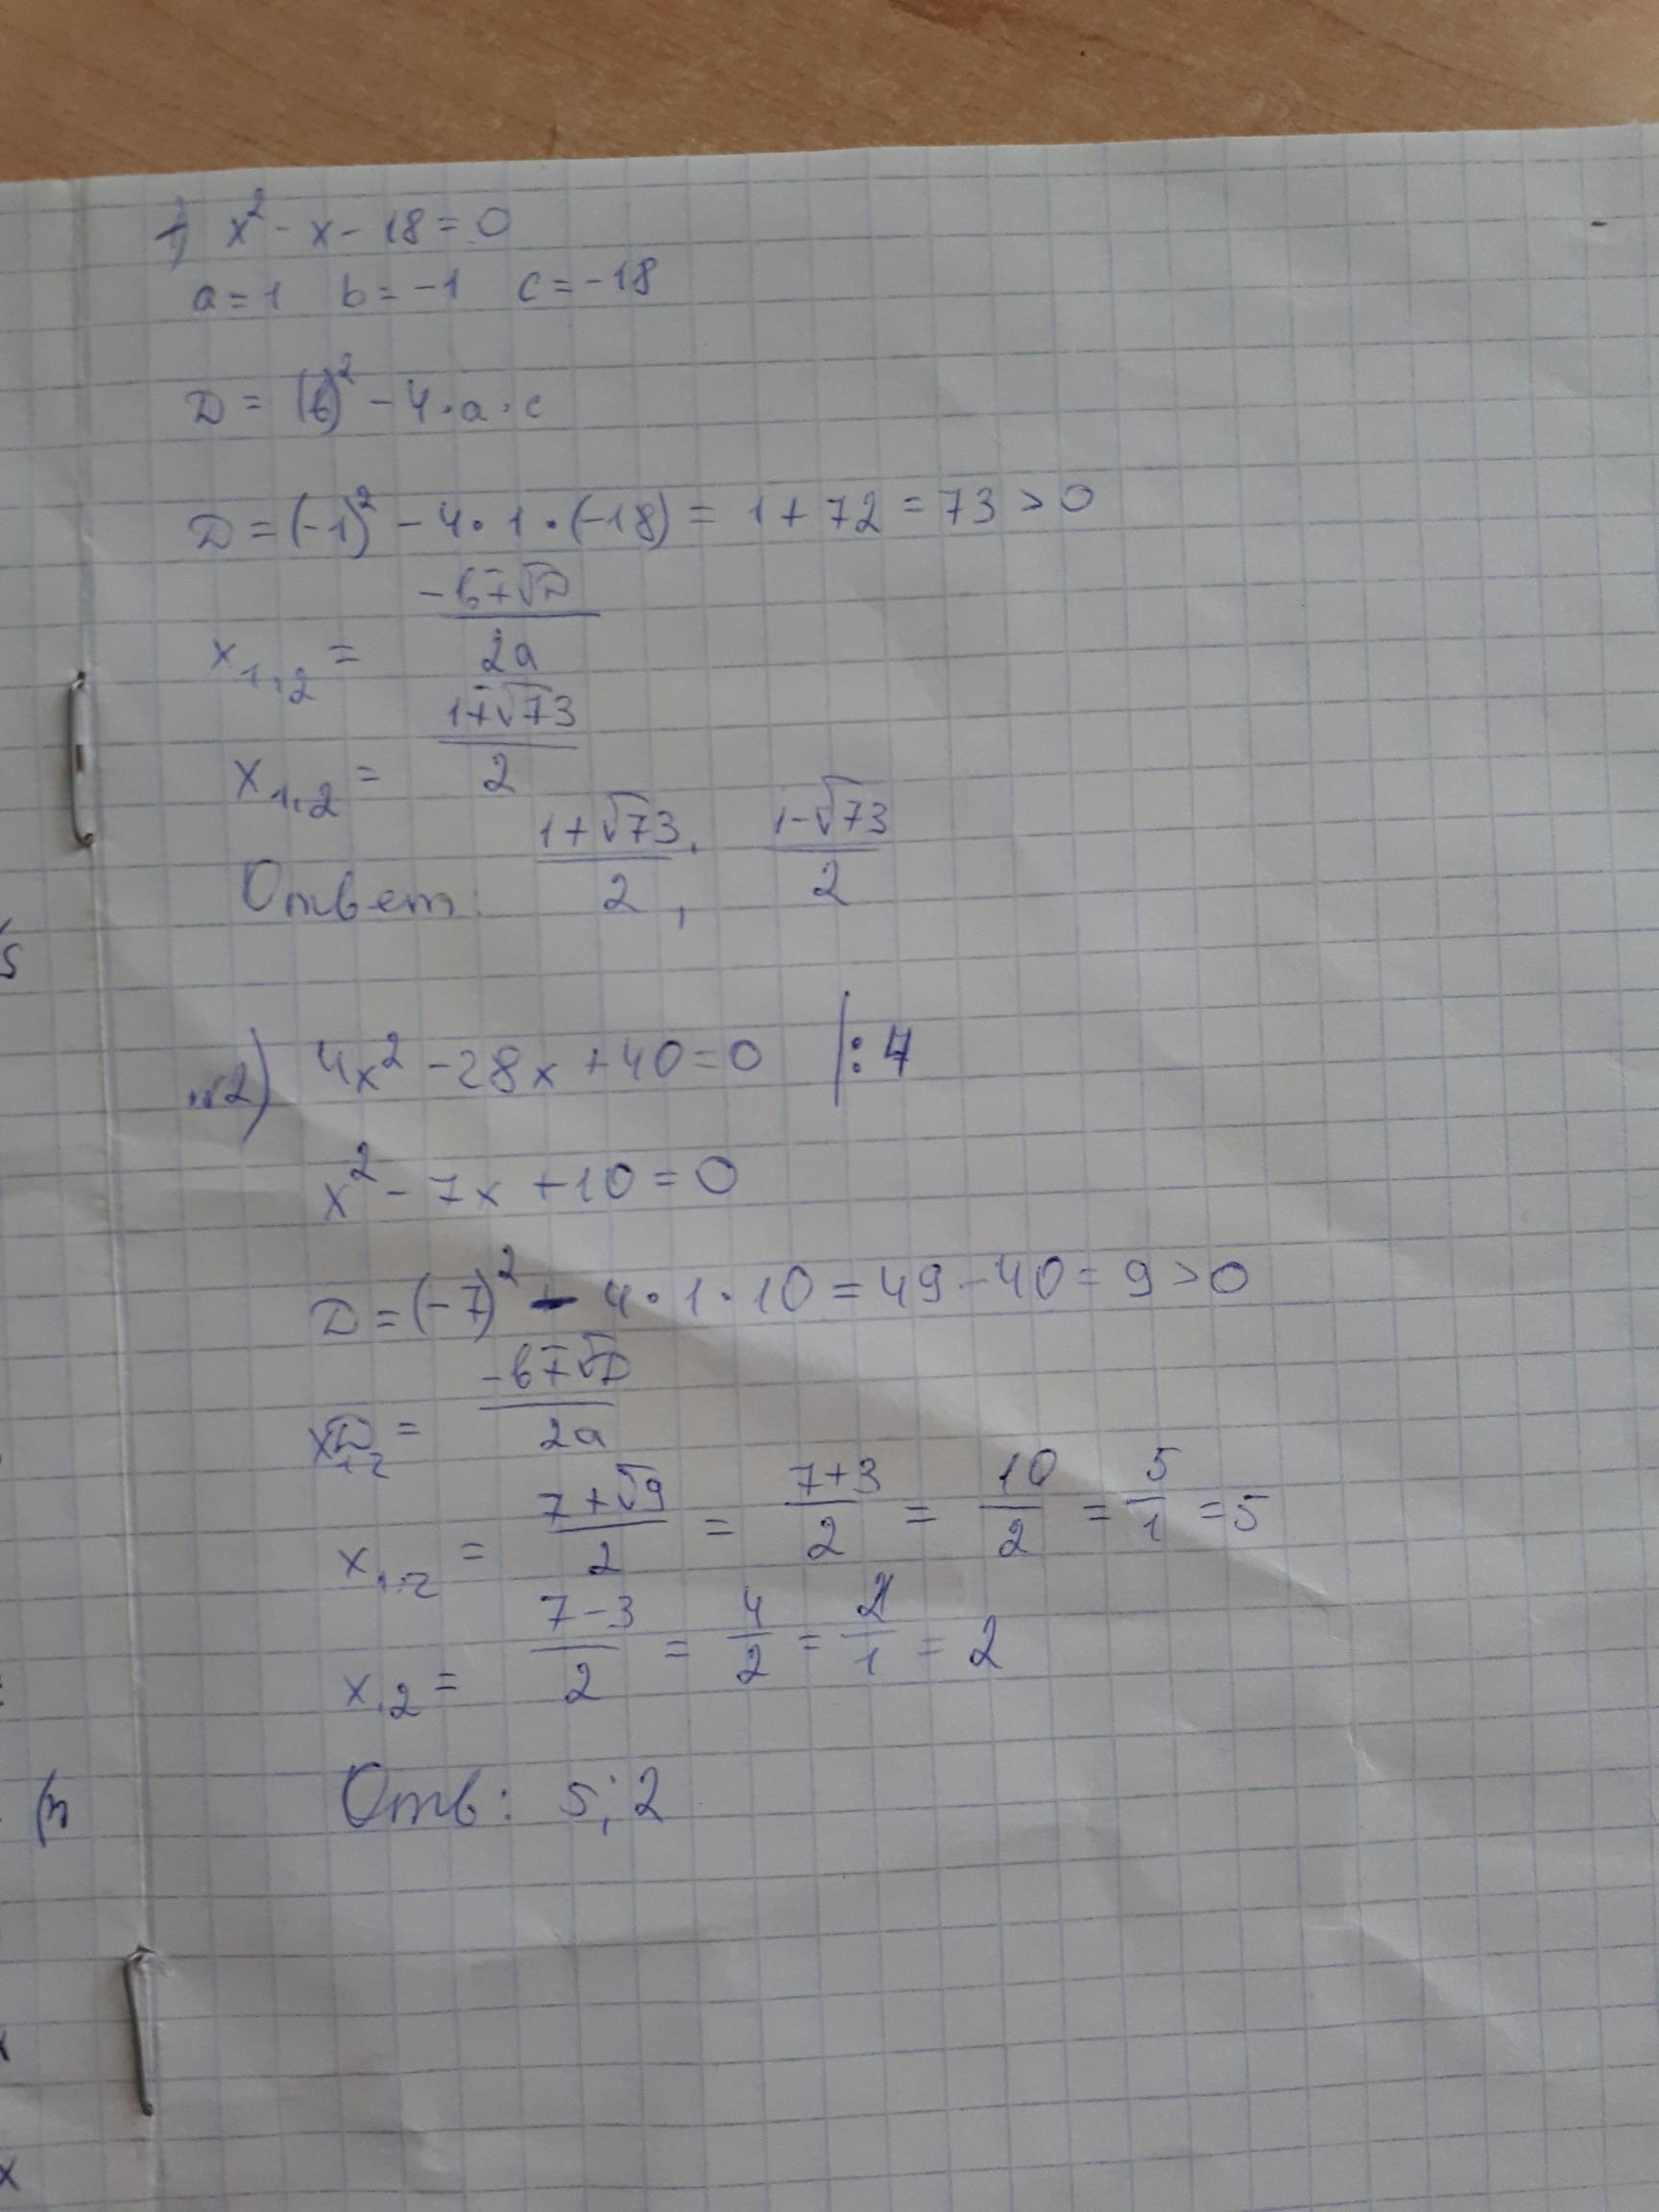 1) x² - x - 18 = 0
a = 1 b = -1 c = -18
D = (b)² - 4 · a · c
D = (-1)² - 4 · 1 · (-18) = 1 + 72 = 73 > 0
x₁,₂ = (-b ∓ √D) / 2a
x₁,₂ = (1 ∓ √73) / 2
Ответ: (1 + √73) / 2 , (1 - √73) / 2
2) 4x² - 28x + 40 = 0 | : 4
x² - 7x + 10 = 0
D = (-7)² - 4 · 1 · 10 = 49 - 40 = 9 > 0
x₁,₂ = (-b ∓ √D) / 2a
x₁,₂ = (7 + √9) / 2 = (7 + 3) / 2 = 10 / 2 = 5 / 1 = 5
x₂ = (7 - 3) / 2 = 4 / 2 = 2 / 1 = 2
Отв: 5; 2